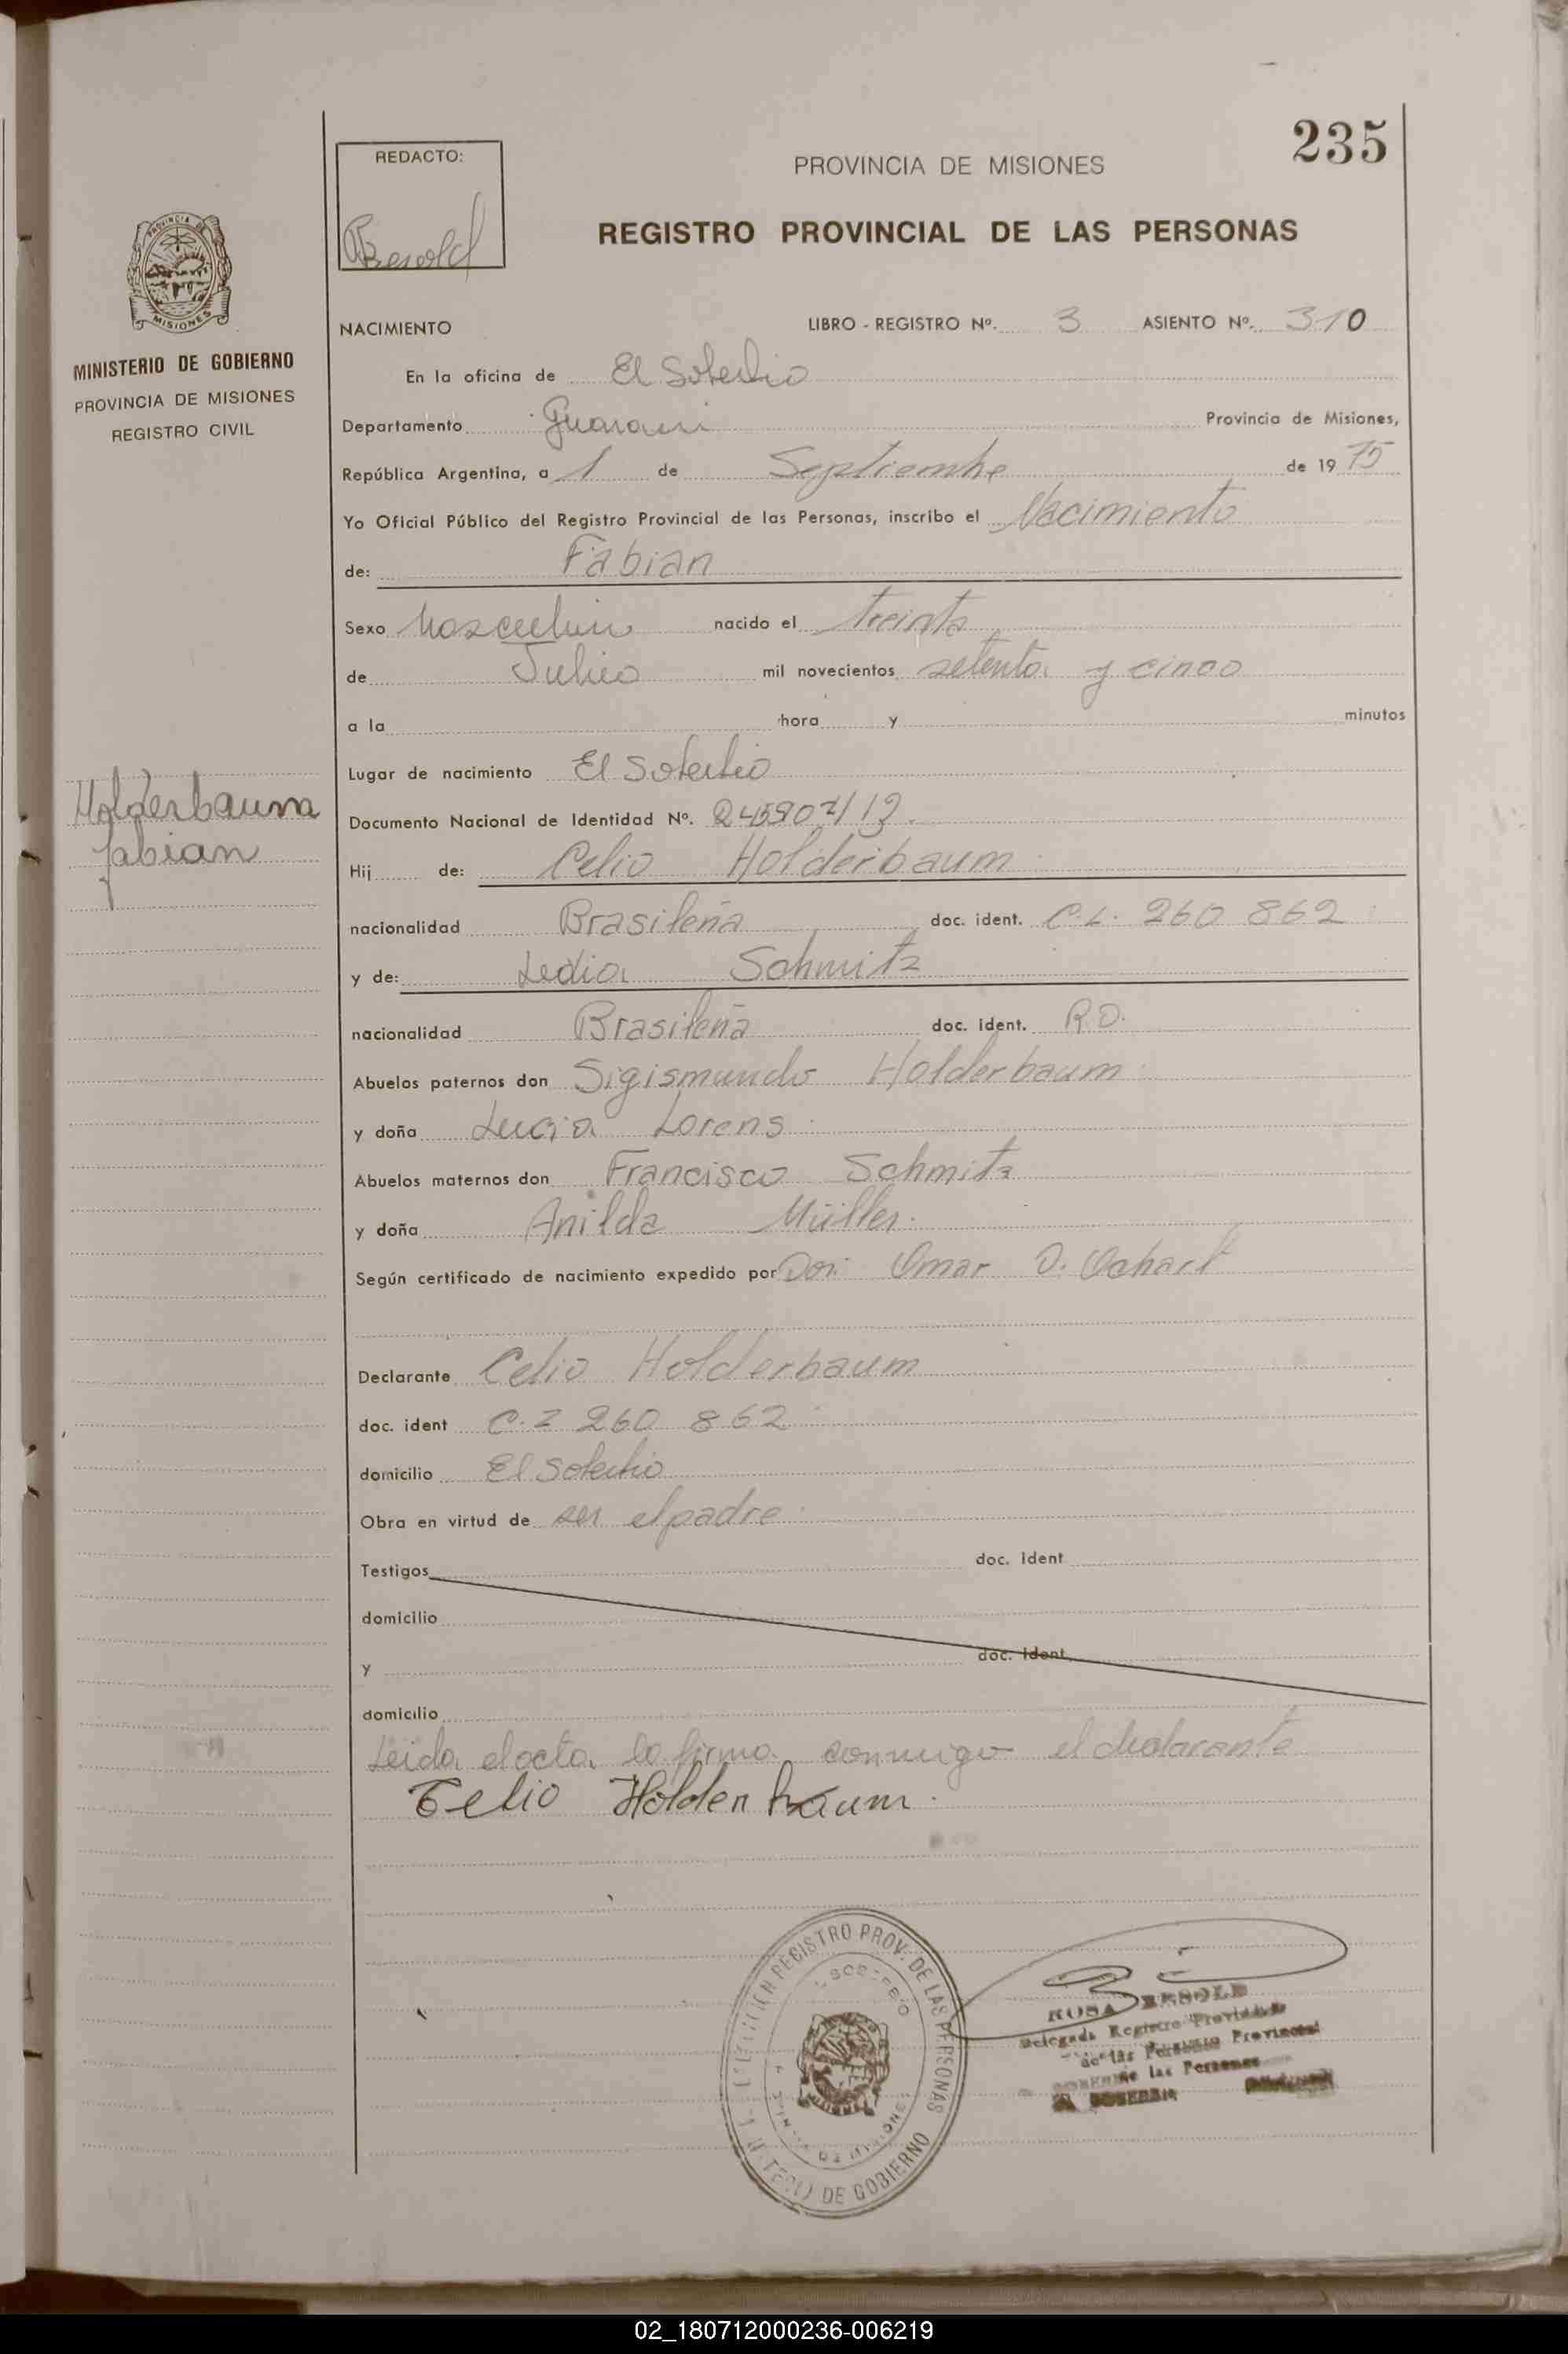 235
REDACTO:
PROVINCIA DE MISIONES
REGISTRO PROVINCIAL DE LAS PERSONAS
MISIONES
MINISTERIO DE GOBIERNO
PROVINCIA DE MISIONES
REGISTRO CIVIL
NACIMIENTO LIBRO - REGISTRO Nº. 3 ASIENTO Nº. 310
En la oficina de El Soberbio
Departamento Guarani Provincia de Misiones,
República Argentina, a 1 de Septiembre de 19 75
Yo Oficial Público del Registro Provincial de las Personas, inscribo el Nacimiento
de: Fabian
Sexo Masculino nacido el treinta
de Julio mil novecientos setenta y cinco
a la hora y minutos
Lugar de nacimiento El Soberbio
Holderbaum
Fabian
Documento Nacional de Identidad Nº.
Hij de: Celio Holderbaum
nacionalidad Brasileña doc. ident. 260 862
y de: Ledia Schmitz
nacionalidad Brasileña doc. ident.
Abuelos paternos don Sigismundo Holderbaum
y doña Lucia Lorens
Abuelos maternos don Francisco Schmitz
y doña Anilda Müller.
Según certificado de nacimiento expedido por Omar
Declarante Celio Holderbaum
doc. ident 260 862
domicilio El Soberbio
Obra en virtud de ser el padre
Testigos doc. ident
domicilio
y doc. ident
domicilio
Leida el acta la firma conmigo el declarante
Celio Holderbaum.
REGISTRO PROV. DE LAS PERSONAS
DE GOBIERNO
ROSA BESOLD
Delegada Registro Provincial
de las Personas
02_180712000236-006219